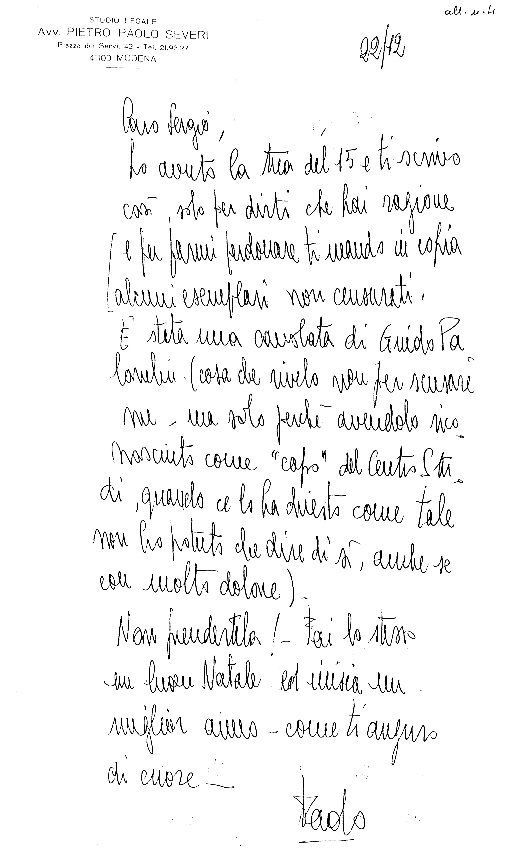 all. n. 4
STUDIO LEGALE
Avv. PIETRO PAOLO SEVERI
Piazza dei Servi, 42 - Tel. 21.92.27
4100 MODENA
22/12
Caro Sergio,
ho avuto la tua del 15 e ti scrivo
così, solo per dirti che hai ragione
(e per farmi perdonare ti mando in copia
alcuni esemplari non censurati.
È stata una cavolata di Guido Pa
lombi (cosa che rivelo non per scusare
me - ma solo perché avendolo rico
nosciuto come "capo" del Centro Stu-
di, quando ce lo ha chiesto come tale
non ho potuto che dire di sì, anche se
con molto dolore).
Non prendertela! - Fai lo stesso
un buon Natale ed inizia un
miglior anno - come ti auguro
di cuore -
Paolo